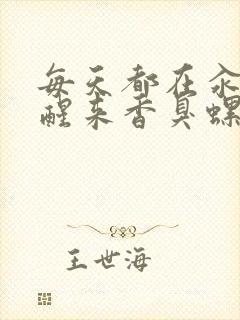 每天都在汆
醒来香臭螺
王世海